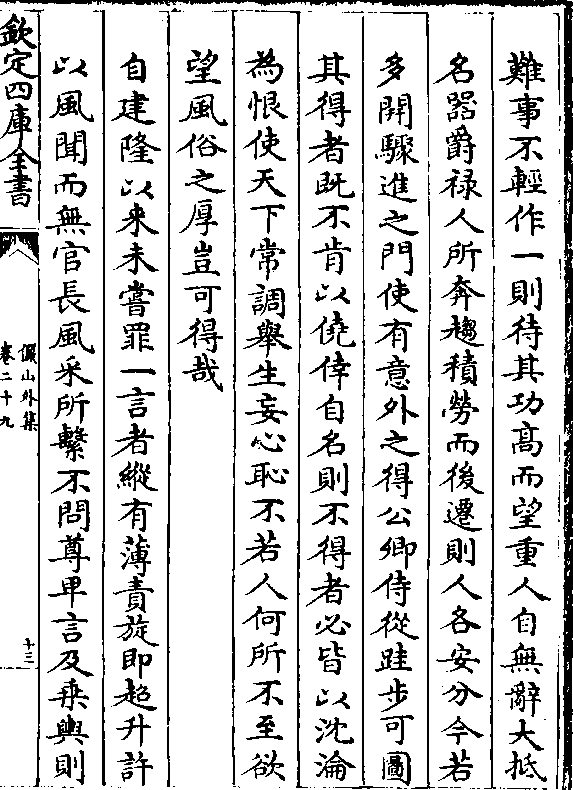 難事不輕作一則待其功高而望重人自無辭大抵
名器爵禄人所奔趨積勞而後遷則人各安分今若
多開驟進之門使有意外之得公卿侍從跬步可圖
其得者既不肯以僥倖自名則不得者必皆以沈淪
為恨使天下常調舉生妄心恥不若人何所不至欲
望風俗之厚豈可得哉
自建隆以来未嘗罪一言者縱有薄責旋即超升許
以風聞而無官長風采所繫不問尊卑言及乗輿則
欽定四庫全書
儼山外集
卷二十九
十三